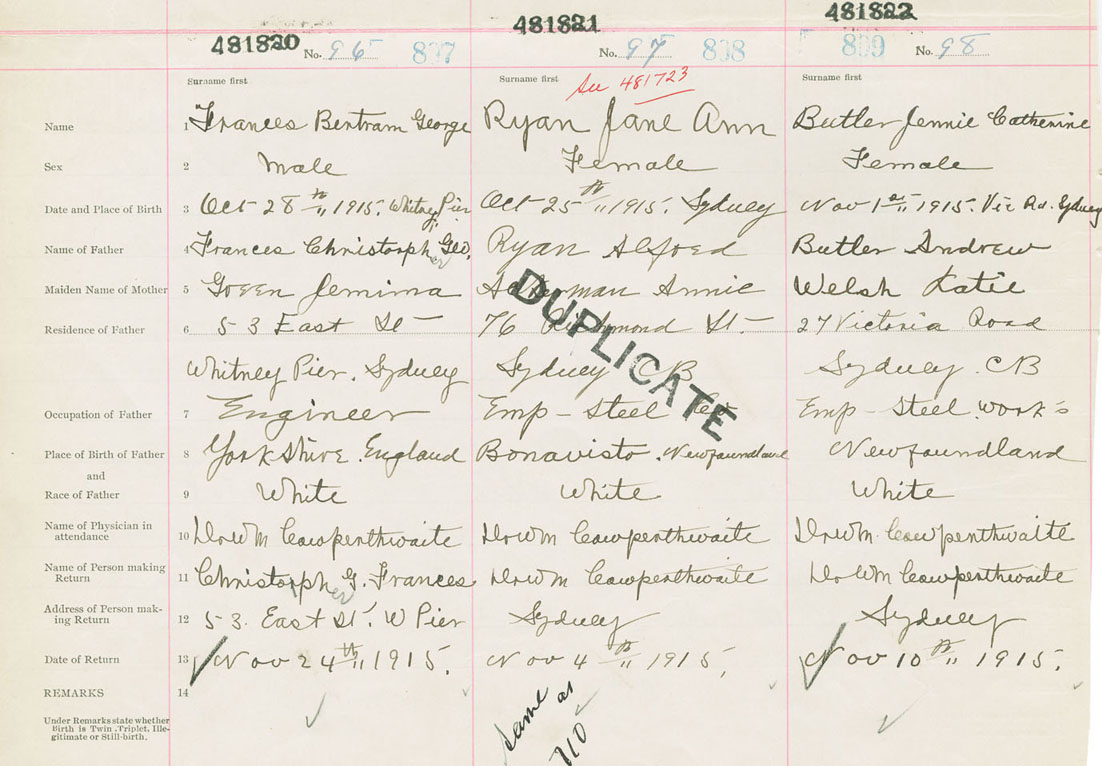 481820 No. 96 807
481821 No. 97 808
481822 809 No. 98
Surname first Surname first See 481723 Surname first
Name 1 Frances Bertram George Ryan Jane Ann Butler Jennie Catherine
Sex 2 Male Female Female
Date and Place of Birth 3 Oct 28th " 1915. Whitney Pier Oct 25th " 1915. Sydney Nov 1st " 1915. Vic Rd. Sydney
Name of Father 4 Frances Christorpher Geo. Ryan Alfred Butler Andrew
Maiden Name of Mother 5 Jemima Annie Welsh Katie
Residence of Father 6 53 East St 76 Richmond St. 27 Victoria Road
Whitney Pier. Sydney Sydney CB Sydney. CB
DUPLICATE
Occupation of Father 7 Engineer Emp - Steel Emp - Steel work's
Place of Birth of Father 8 Yorkshire. England Bonavisto. Newfoundland Newfoundland
and
Race of Father 9 White White White
Name of Physician in
attendance 10 Dr Wm Cowperthwaite Dr Wm Cowperthwaite Dr Wm. Cowperthwaite
Name of Person making
Return 11 Christorpher G. Frances Dr Wm Cowperthwaite Dr Wm Cowperthwaite
Address of Person mak-
ing Return 12 53. East St. W Pier Sydney Sydney
Date of Return 13 Nov 24th " 1915. Nov 4th " 1915. Nov 10th " 1915.
REMARKS 14
Same as
710
Under Remarks state whether
Birth is Twin, Triplet, Ille-
gitimate or Still-birth.